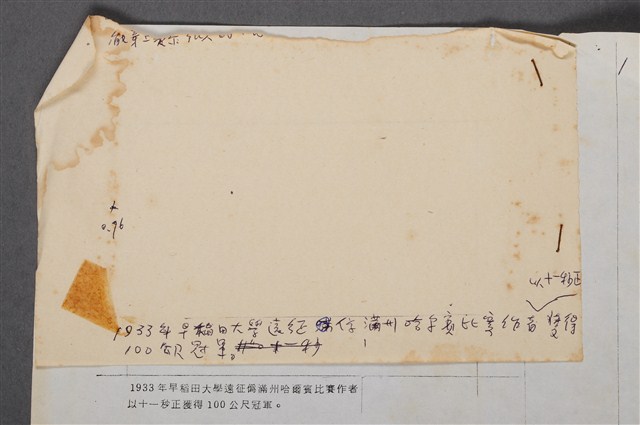 0.96
以十一秒正
1933年早稲田大學遠征偽滿州哈尔賓比賽作者獲得
100公尺冠軍。
1933年早稻田大學遠征偽滿州哈爾賓比賽作者
以十一秒正獲得100公尺冠軍。